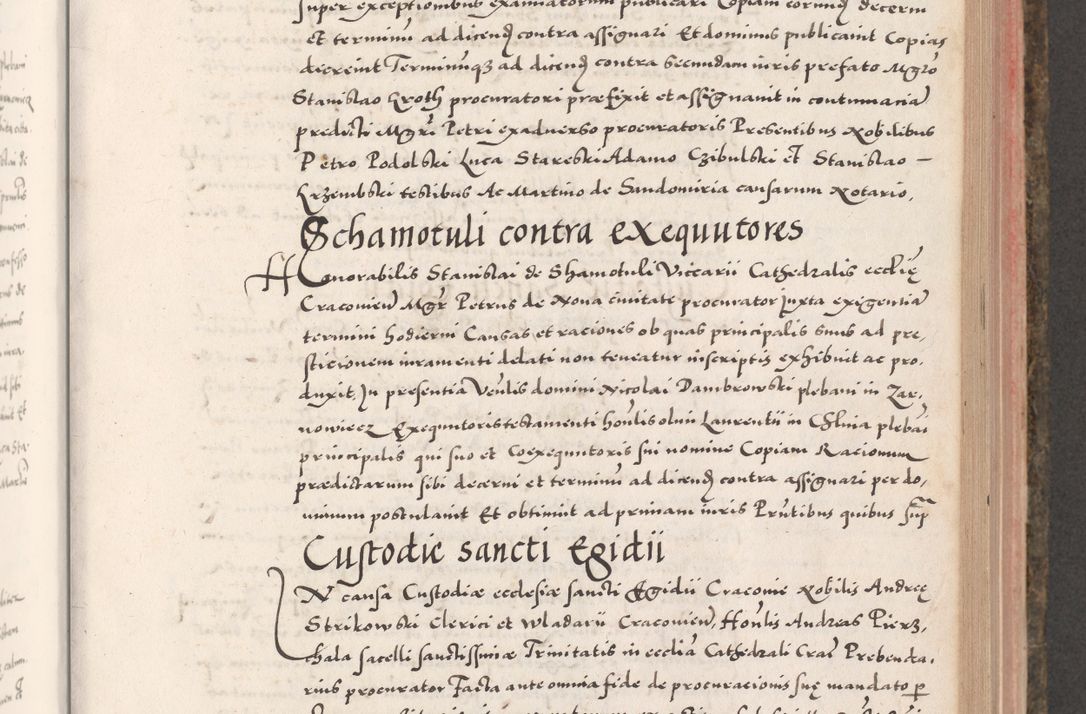 super exceptionibus examinatorum publicari Copiam eorund decerni
et terminũ ad dicend contra assignari Et dominus publicauit Copias
decreuit Terminumq3 ad dicend contra secundam iuris prefato Mgro
Stanislao Kroth procuratori præfixit et assignauit in contumaciã
predicti Mgri Petri ex aduerso procuratoris Presentibus Nobilibus
Petro Podolski Luca Stareski Adamo Czibulski et Stanislao –
Krzembski testibus Ac Martino de Sandomiria causarum Notario.
Schamotuli contra exequutores
Honorabilis Stanislai de Shamotuli Vicarii Cathedralis eccliȩ
Cracouien Mgr Petrus de Noua ciuitate procurator iuxta exigentiã
termini hodierni Causas et raciones ob quas principalis suus ad pre,
sticionem iuramenti delati non teneatur inscriptis exhibuit ac pro,
duxit. In presentia Venlis domini Nicolai Dambrowski plebani in Zar,
nowiecz Exequutoris testamenti honlis olim Laurentii in plebani
principalis qui suo et Coexequutoris sui nomine Copiam Racionum
prædictarum sibi decerni et terminũ ad dicend contra assignari per do,
minum postulauit Et obtinuit ad primam iuris Prntibus quibus supra
Custodie sancti Egidii
IN causa Custodiæ ecclesiæ sancti Egidii Cracouie Nobilis Andreȩ
Strikowski Clerici et Wladarii Cracouien, Honlis Andreas Pierz,
chala sacelli sanctissimæ Trinitatis in ecclia Cathedrali Crac Prebenda,
rius procurator Facta ante omnia fide de procuracionis suȩ mandato p